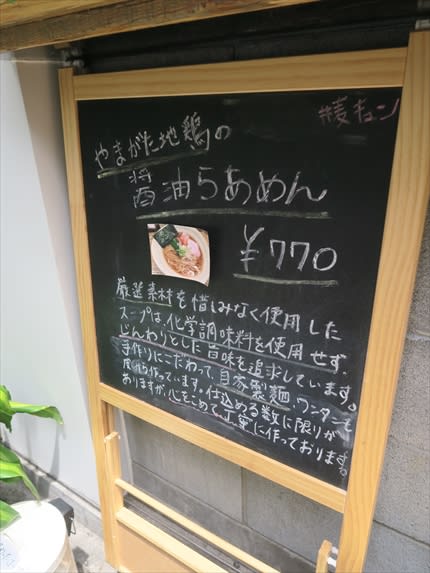 #麦キュン
やまがた地鶏の
醤油らぁめん
¥770
厳選素材を惜しみなく使用した
スープは、化学調味料を使用せず、
じんわりとした旨味を追求しています。
手作りにこだわって、自家製麺、ワンタンも
作っています。仕込める数に限りが
ありますが、心をこめて丁寧に作っております。